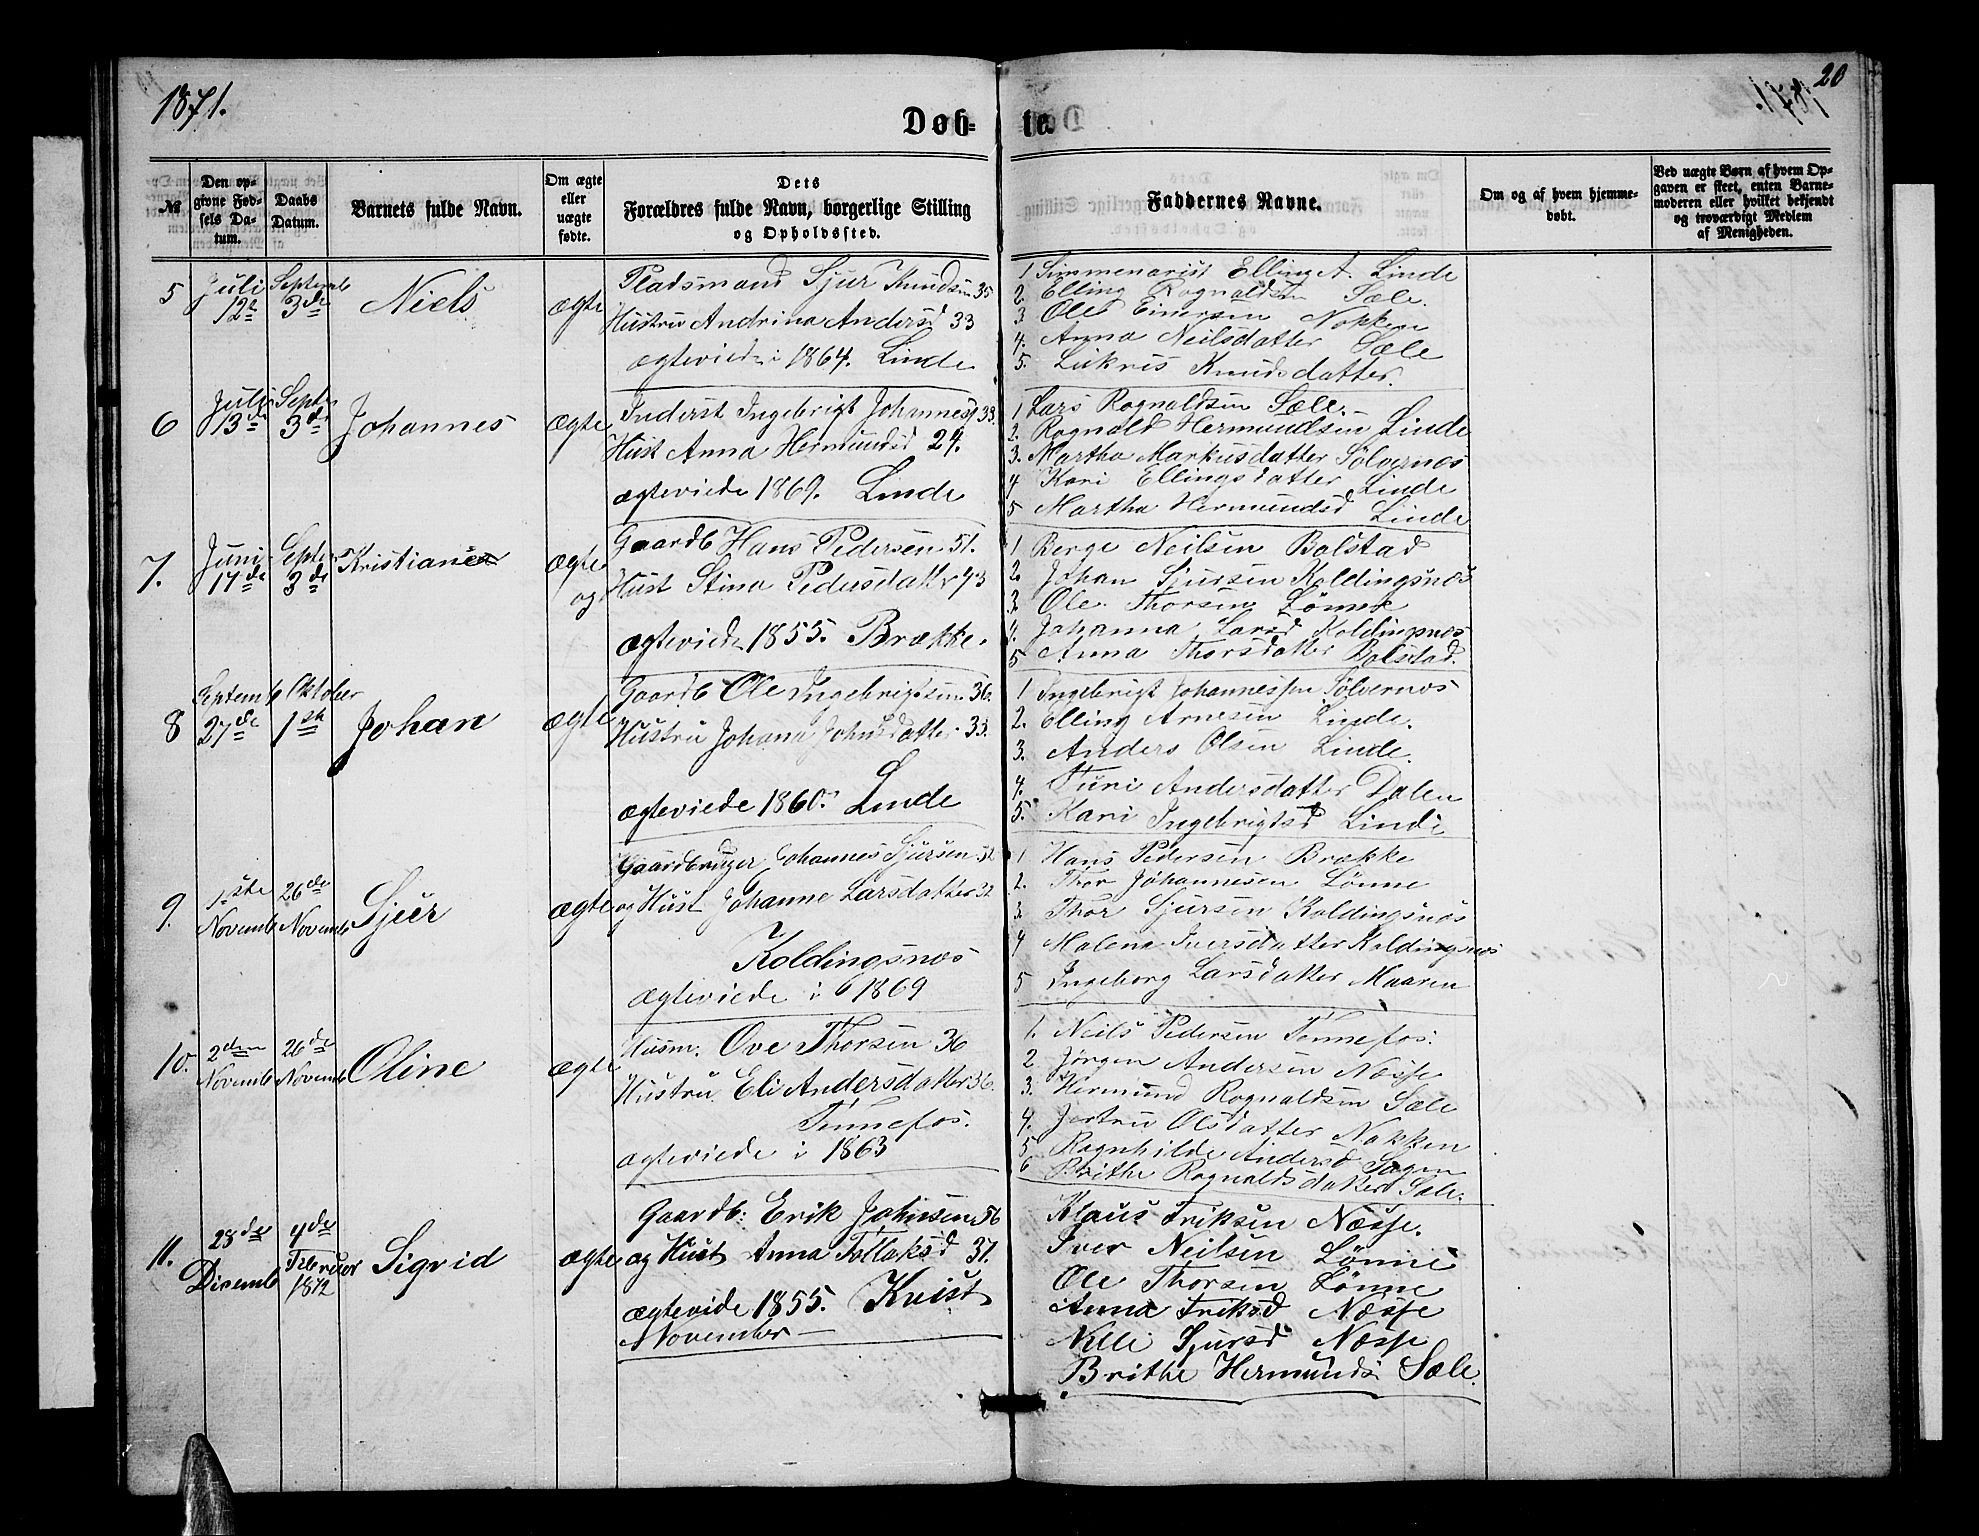 1871.
20
Døb-
te.
№
Den op-
givne Fød-
sels Da-
tum.
Daabs
Datum.
Barnets fulde Navn.
Om ægte
eller
uægte
fødte.
Dets
Forældres fulde Navn, borgerlige Stilling
og Opholdssted.
Faddernes Navne.
Om og af hvem hjemme-
døbt.
Ved uægte Børn af hvem Op-
gaven er skeet, enten Barne-
moderen eller hvilket bekjendt
og troværdigt Medlem
af Menigheden.
5
Juli
12te
Septemb
3de
Niels
ægte
Pladsmand Sjur Knudsen 35
Hustru Andrina Andersd 33
ægteviede i 1864. Linde
1 Elling A. Linde
2. Elling Rognaldsen Sæle.
3 Ole Einersen Nokken
4. Anna Neilsdatter Sæle
5. Lukris Knudsdatter.
6
Juli
13de
Septr
3de
Johannes
ægte
Inderst Ingebrigt Johannes 33
Hust Anna Hermundsd 24.
ægteviede 1869. Linde
1 Lars Rognaldsen Sæle.
2. Rognald Hermundsen Linde
3. Martha Markusdatter Sølvernæs
4 Kari Ellingsdatter Linde
5 Martha Hermundsd Linde
7.
Juni
17de
Septr
3de
Kristiane
ægte
og
Gaardb Hans Pedersen 51.
Hust Stina Pedersdatter 43
ægteviede 1855. Brække.
1 Berge Neilsen Bolstad
2. Johan Sjursen Koldingsnæs
3. Ole Thorsen Lønne
4. Johanna Larsd Koldingnæs
5 Anna Thorsdatter Bolstad.
8
Septemb
27de
Oktober
1ste
Johan
ægte
Gaardb Ole Ingebrigtsen 36.
Hustru Johana Johnsdatter 33.
ægteviede 1860. Linde
1 Ingebrigt Johannessen Sølvernæs
2. Elling Arnesen Linde.
3. Anders Olsen Linde.
4. Turi Andersdatter Dalen
5. Kari Ingebrigtsd Linde
9.
1ste
Novemb
26de
Novemb
Sjur
ægte
Gaardbruger Johannes Sjursen 52
og Hust Johanne Larsdatter 32
Koldingsnæs
ægteviede i 1869
1 Hans Pedersen Brække
2. Thor Johannesen Lønne
3. Thor Sjursen Koldingsnæs
4 Malena Iversdatter Koldingsnæs
5 Ingeborg Larsdatter Maaren
10.
2den
Novemb
26de
Novemb
Oline
ægte
Husm. Ove Thorsen 36
Hustru Eli Andersdatter 36.
Tennefos.
ægteviede i 1863
1. Neils Pedersen Tennefos.
2 Jørgen Andersen Næsse
3. Hermund Rognaldsen Sæle
4. Jertru Olsdatter Nokken
5 Ragnhilde Andersd Sagen
6 Brithe Rognaldsdatter Sæle.
11.
28de
Dicemb
4de
Februar
1872
Sigvid
ægte
Gaardb: Erik Johnsen 56
og Hust Anna Tollaksd 37.
ægtevide 1855. Kvist
November
Klaus Eriksen Næsse.
Iver Neilsen Lønne
Ole Thorsen Lønne
Anna Eriksd Næsse
Nille Sjursd Næsse
Brithe Hermunds Sæle.